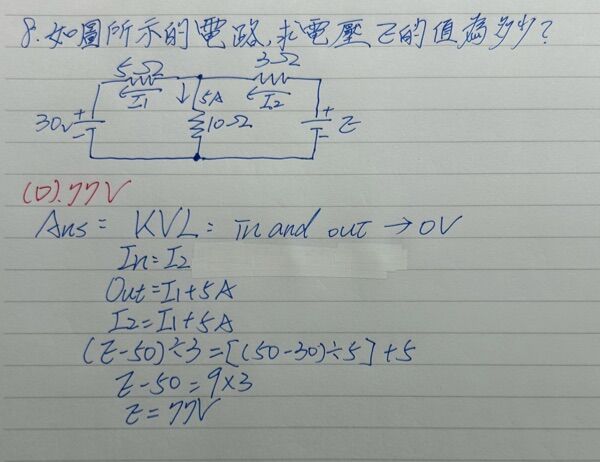 8.如圖所示的電路,求電壓E的值為多少?
5Ω
3Ω
I1
5A
I2
30V
+
-
10Ω
+
-
E
(D).77V
Ans= KVL= in and out → 0V
In=I2
Out=I1+5A
I2=I1+5A
(E-50)÷3=[(50-30)÷5]+5
E-50=9×3
E=77V